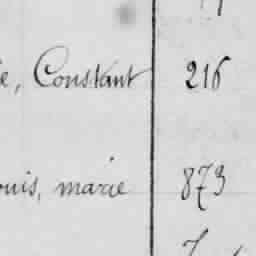 e, Constant 216
ouis, marie 873